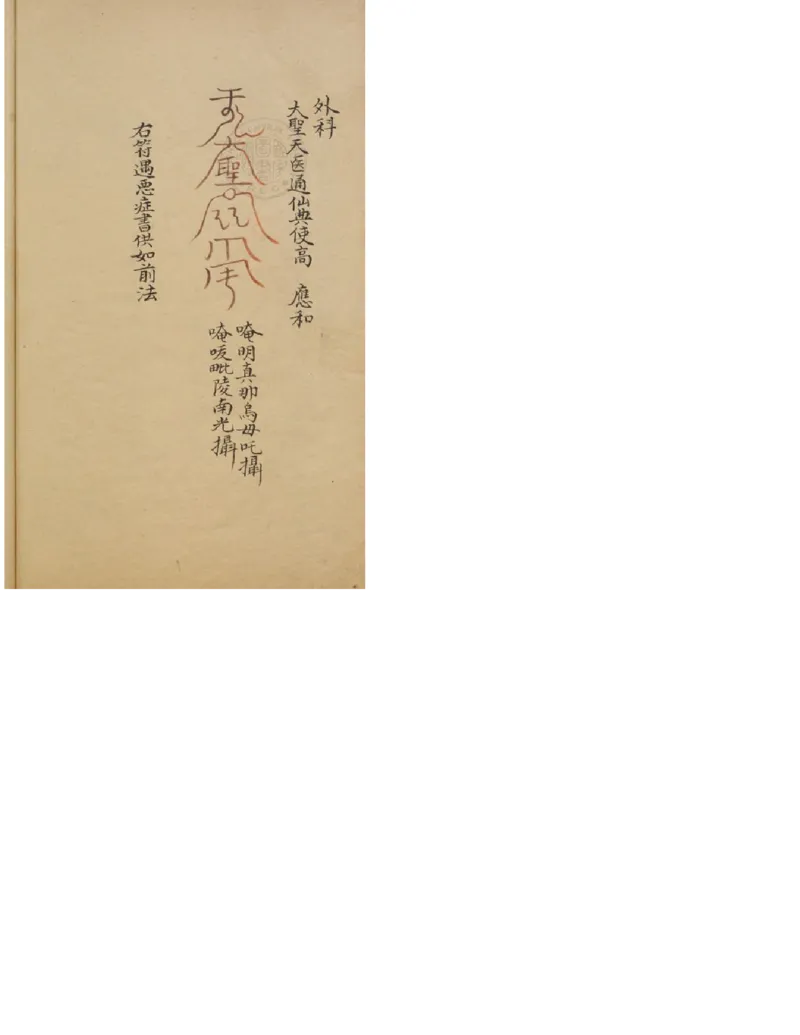 外科
大聖天医通仙典使高　應和
聖
唵明真那烏毋吒攝
唵唛毗陵南光攝
右符遇恶症書供如前法